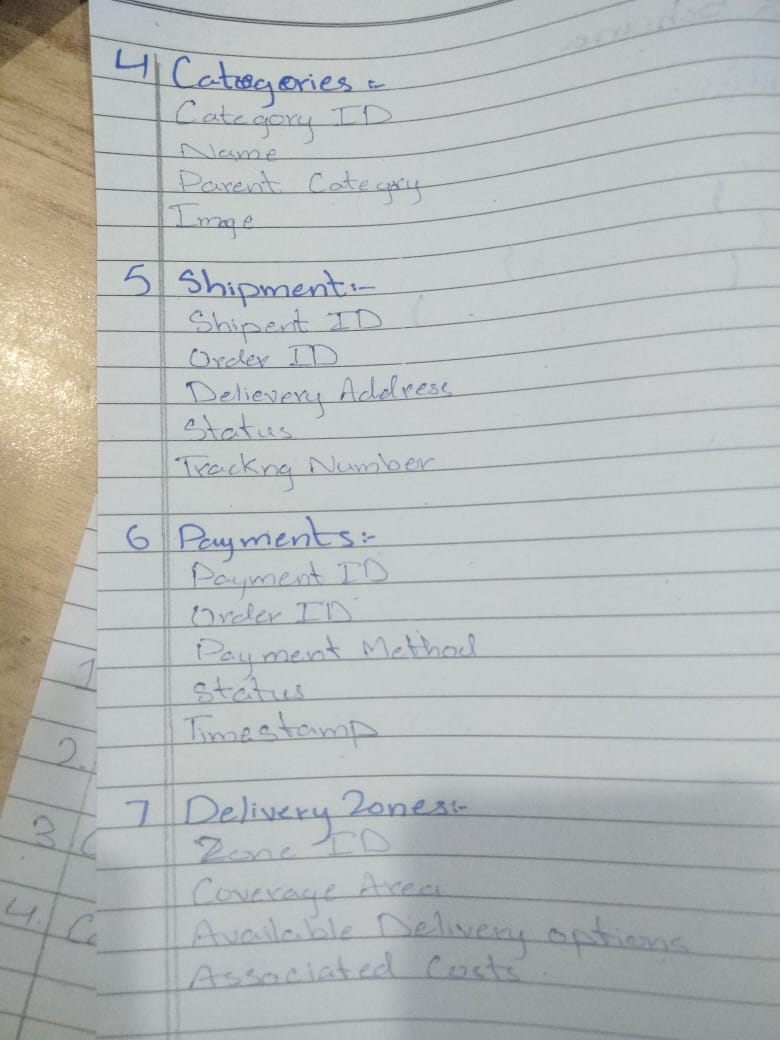 4 Categories :-
Category ID
Name
Parent Category
Image
5 Shipment:-
Shipent ID
Order ID
Delievery Address
Status
Trackng Number
6 Payments:-
Payment ID
Order ID
Payment Method
Status
Timestamp
7 Delivery Zones:-
Zone ID
Coverage Area
Available Delivery options
Associated Costs
1
2.
3
4.